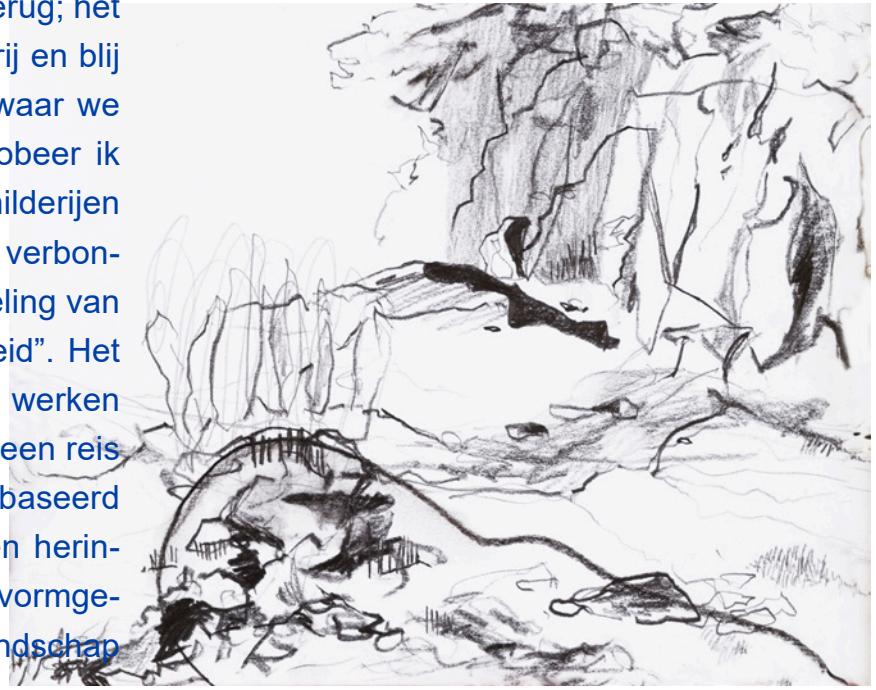 erug; het
rij en blij
waar we
obeer ik
ilderijen
verbon-
eling van
eid”. Het
werken
een reis
baseerd
n herin-
vormge-
ndschap